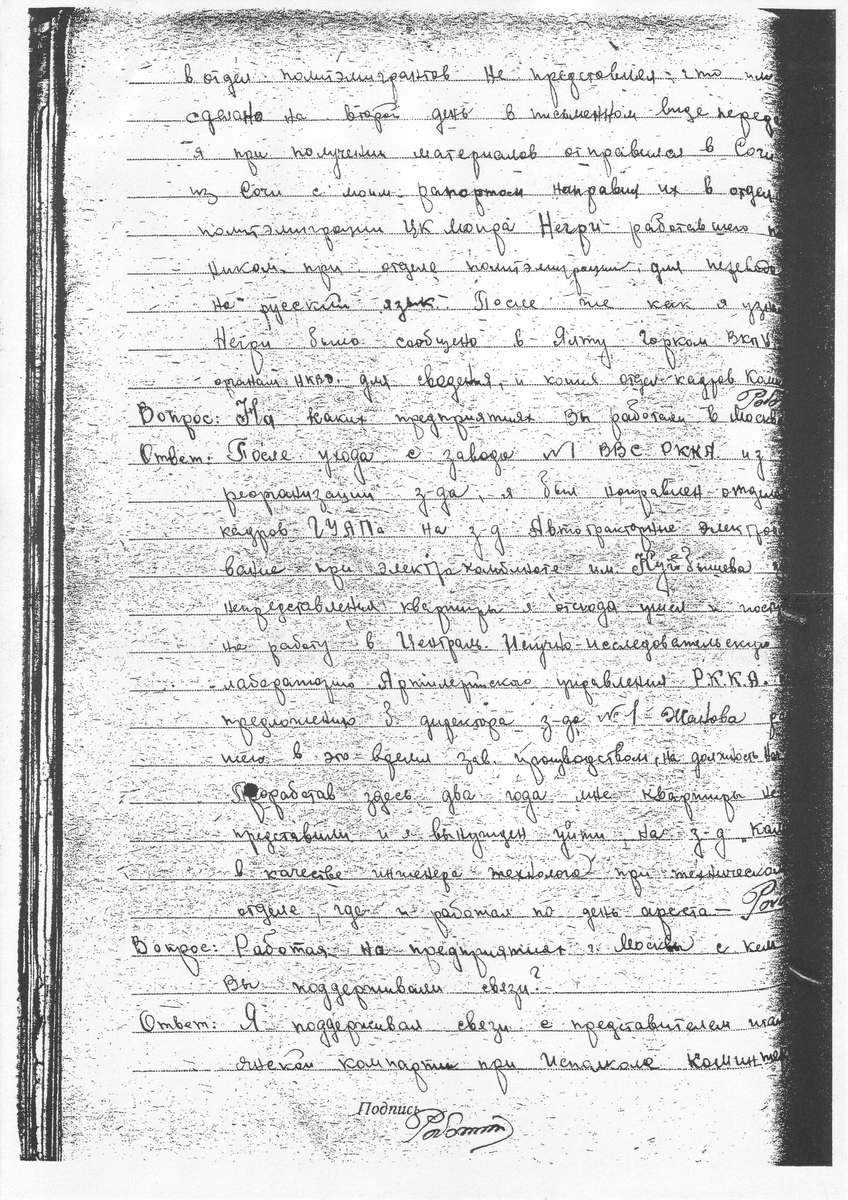 в отдел политэмигрантов не представлял, что
сделано на второй день в письменном виде переда
я при получении материалов отправился в Сочи
из Сочи с моим рапортом направил их в отдел
политэмиграции ЦК Мопра Негри работавшего
ником при отделе политэмиграции, для перевода
на русский язык. После же как я узн
Негри было сообщено в Ялту горком ВКП/
органам НКВД. для сведения, и копия отдел кадров Коми
Вопрос: На каких предприятиях Вы работали в Москв
Ответ: После ухода с завода №1 ВВС РККА из
реорганизации з-да, я был направлен отдело
кадров ГУАПа на з-д Автотракторные электро
вание при электрокомбинате им. Куйбышева
непредставления квартиры я отсюда ушел и пост
на работу в Централ. Научно-исследовательскую
лабораторию Артиллерийского управления Р.К.К.А.
предложению б. директора з-да №1 Жанова ра
шего в это время зав. производством, на должность
Проработав здесь два года мне квартиры не
представили и я вынужден уйти на з-д
в качестве инженера технолога при технической
отделе, где и работал по день ареста —
Вопрос: Работая на предприятиях г. Москвы с кем
Вы поддерживали связи?
Ответ: Я поддерживал связи с представителем итал
янской компартии при Исполкоме Коминте
Подпись